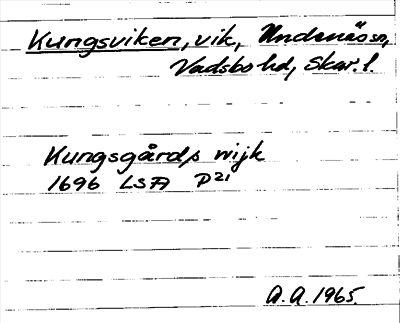 Kungsviken, vik, Undenäs sn,
Vadsbo hd, Skar. l.
Kungsgårds wijk
1696 LSA P21
A.A. 1965.